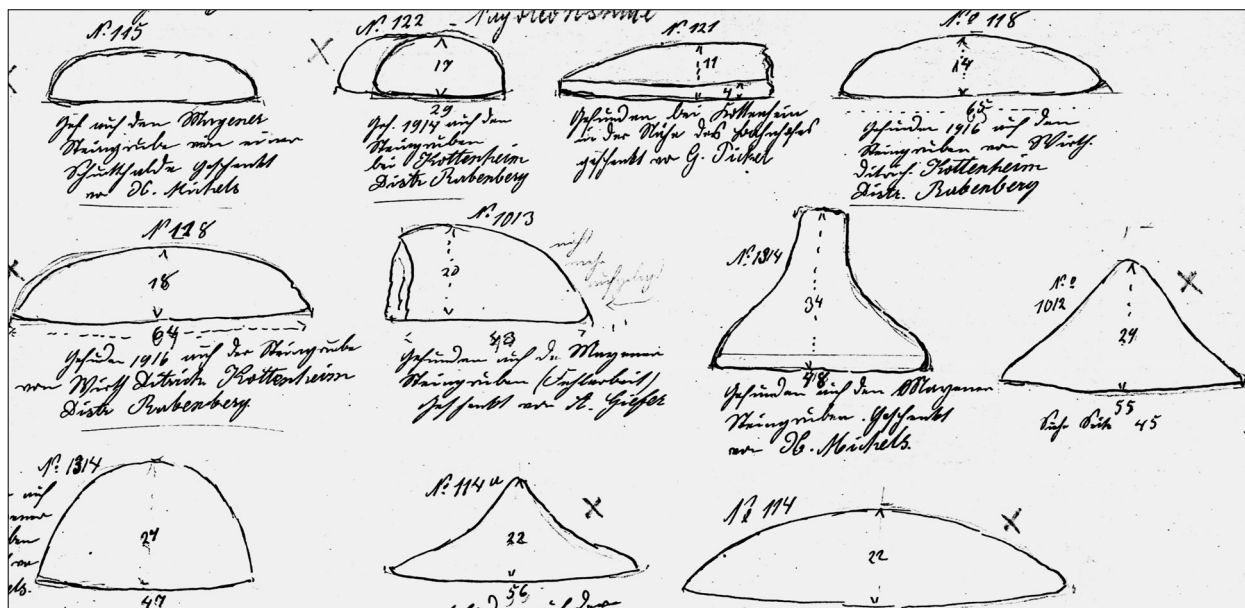 Napoleonshüte
№ 115
Gef auf den Mayener
Steingrube von einer
Schutthalde Geschenkt
von H. Michels
№ 122
17
29
Gef. 1914 auf den
Steingruben
bei Kottenheim
Distr Rabenberg
№ 121
11
4
Gefunden bei Kottenheim
in der Nähe des
geschenkt von G. Pickel
№ 118
14
65
Gefunden 1916 auf den
Steingruben von Wirth.
Kottenheim
Distr. Rabenberg
№ 128
18
64
Gefunden 1916 auf der Steingrube
von Wirth Kottenheim
Distr Rabenberg
№ 1013
20
43
Gefunden auf de Mayener
Steingruben (Fehlarbeit)
Geschenkt von
№ 1314
34
48
Gefunden auf den Mayener
Steingruben. Geschenkt
von H. Michels.
№ 1012
24
55
Siehe Seite 45
№ 1314
27
47
№ 114a
22
56
№ 114
22